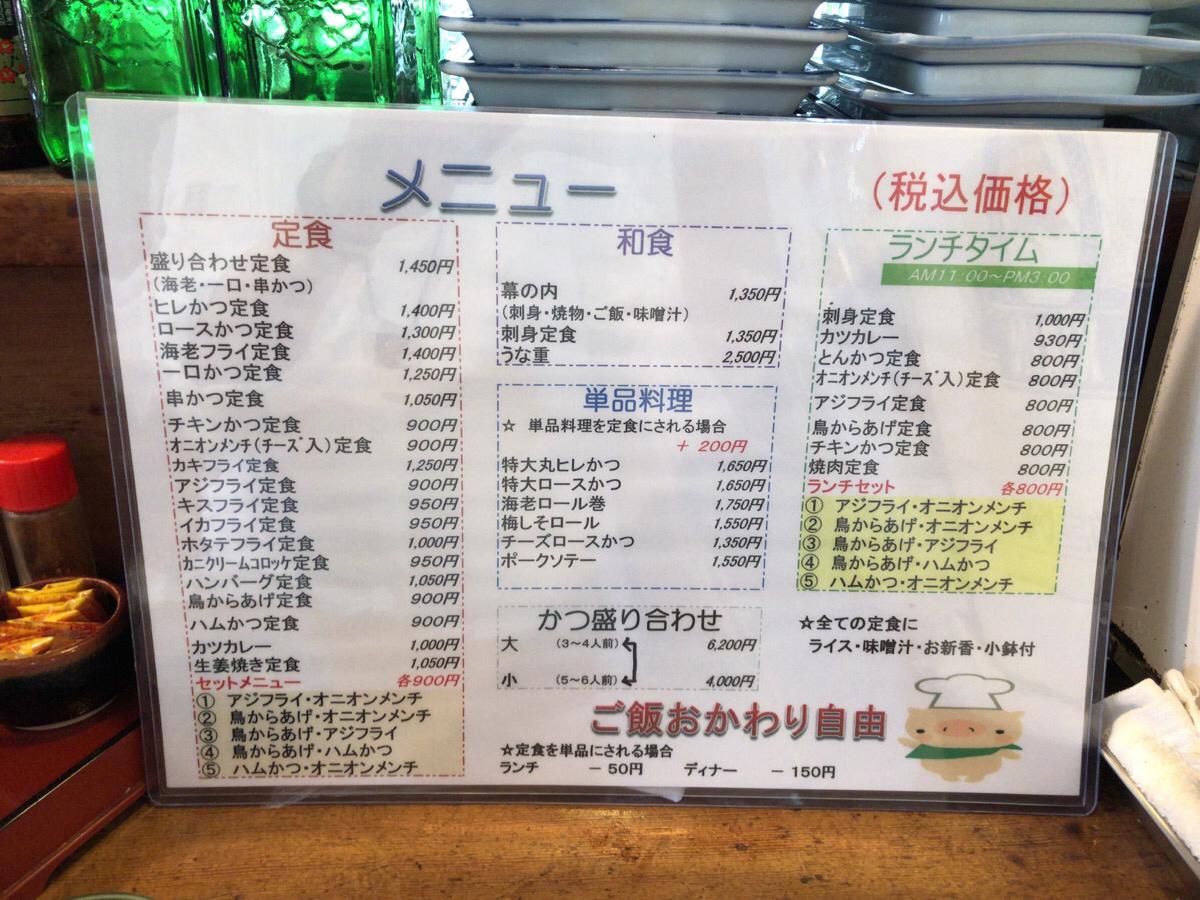 メニュー
(税込価格)
定食
盛り合わせ定食 1,450円
(海老・一口・串かつ)
ヒレかつ定食 1,400円
ロースかつ定食 1,300円
海老フライ定食 1,400円
一口かつ定食 1,250円
串かつ定食 1,050円
チキンかつ定食 900円
オニオンメンチ(チーズ入)定食 900円
カキフライ定食 1,250円
アジフライ定食 900円
キスフライ定食 950円
イカフライ定食 950円
ホタテフライ定食 1,000円
カニクリームコロッケ定食 950円
ハンバーグ定食 1,050円
鳥からあげ定食 900円
ハムかつ定食 900円
カツカレー 1,000円
生姜焼き定食 1,050円
セットメニュー 各900円
① アジフライ・オニオンメンチ
②鳥からあげ・オニオンメンチ
③ 鳥からあげ・アジフライ
④ 鳥からあげ・ハムかつ
⑤ ハムかつ・オニオンメンチ
和食
幕の内 1,350円
(刺身・焼物・ご飯・味噌汁)
刺身定食 1,350円
うな重 2,500円
単品料理
☆ 単品料理を定食にされる場合
+ 200円
特大丸ヒレかつ 1,650円
特大ロースかつ 1,650円
海老ロール巻 1,750円
梅しそロール 1,550円
チーズロースかつ 1,350円
ポークソテー 1,550円
かつ盛り合わせ
大 (3〜4人前) 6,200円
小 (5〜6人前) 4,000円
ご飯おかわり自由
☆定食を単品にされる場合
ランチ －50円 ディナー －150円
ランチタイム
AM11:00〜PM3:00
刺身定食 1,000円
カツカレー 930円
とんかつ定食 800円
オニオンメンチ(チーズ入)定食 800円
アジフライ定食 800円
鳥からあげ定食 800円
チキンかつ定食 800円
焼肉定食 800円
ランチセット 各800円
① アジフライ・オニオンメンチ
② 鳥からあげ・オニオンメンチ
③ 鳥からあげ・アジフライ
④ 鳥からあげ・ハムかつ
⑤ ハムかつ・オニオンメンチ
☆全ての定食に
ライス・味噌汁・お新香・小鉢付